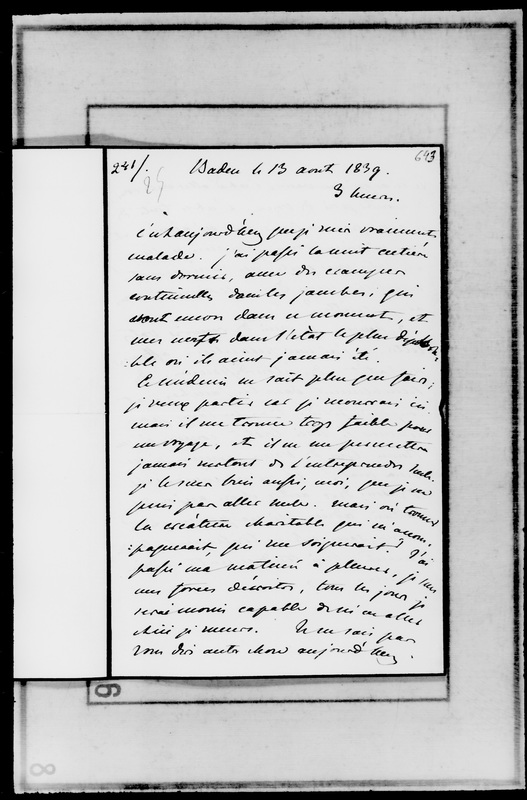 643
241/. Baden le 13 août 1839.
29
3 heures.
C'est aujourd'huy que je suis vraiment
malade. j'ai passé la nuit entière
sans dormir, avec des crampes
continuelles dans les jambes, qui
sont encore dans ce moment, et
mes nerfs dans l'état le plus déplora-
:ble où ils aient jamais été.
Le médecin ne sait plus que faire;
je veux partir car je mourrais ici
mais il me trouve trop faible pour
un voyage, et il ne me permettra
jamais surtout de l'entreprendre seule.
je le sens bien aussi, moi, que je ne
puis pas aller seule. mais où trouver
la créature charitable qui m'accom:
:pagnerait qui me soignerait? J'ai
passé ma matinée à pleurer, je sens
mes forces décroitre, tous les jours je
serai moins capable de m'en aller
Ainsi je meurs. Je ne sais pas
vous dire autre chose aujourd'huy.
9
8